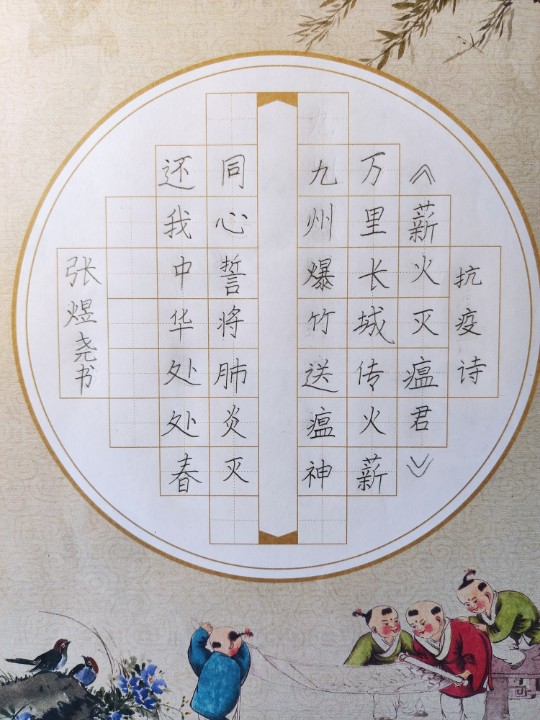 抗疫诗
《薪火灭瘟君》
万里长城传火薪
九州爆竹送瘟神
同心誓将肺炎灭
还我中华处处春
张煜尧书